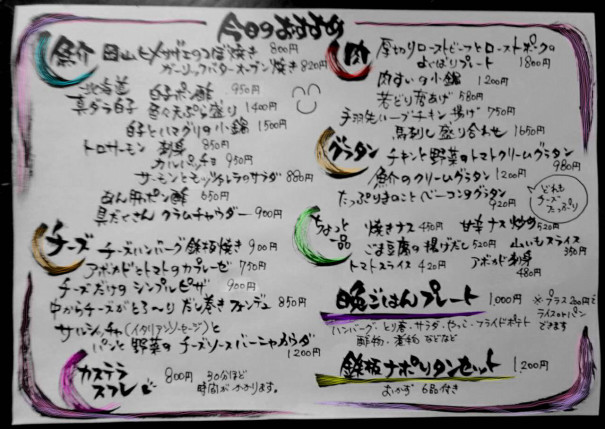 今日のおすすめ
魚介 岡山ヒメサザエのつぼ焼き 800円
ガーリックバターオーブン焼き 820円
北海道 白子ポン酢 950円
真ダラ白子 天ぷら盛り 1400円
白子とハマグリの小鍋 1500円
トロサーモン 刺身 850円
カルパッチョ 950円
サーモンとモッツァレラのサラダ 880円
あん肝ポン酢 650円
具だくさん クラムチャウダー 900円
チーズ チーズハンバーグ鉄板焼き 900円
アボカドとトマトのカプレーゼ 750円
チーズだけのシンプルピザ 900円
中からチーズがとろ〜り だし巻きフォンデュ 850円
サルシッチャ(イタリアンソーセージ)と
パンと野菜のチーズソースバーニャカウダ
1200円
カステラスフレ 800円 30分ほど
時間がかかります。
肉 厚切りローストビーフとローストポークの
よくばりプレート 1800円
肉すいの小鍋 1200円
若どり唐あげ 580円
手羽先ハーブチキン揚げ 750円
馬刺し盛り合わせ 1650円
グラタン チキンと野菜のトマトクリームグラタン
980円
魚介のクリームグラタン 1200円
たっぷりきのことベーコンのグラタン
920円
どれも
チーズ
たっぷり
ちょっと一品 焼きナス 450円 甘辛ナス炒め 520円
ごま豆腐の揚げだし 520円 山いもスライス 350円
トマトスライス 420円 アボカド刺身
480円
晩ごはんプレート 1,000円 ※プラス200円で
ライスかパン
できます
ハンバーグ・とり春・サラダ・やっこ・フライドポテト
などなど
鉄板ナポリタンセット 1200円
おかず 6品付き